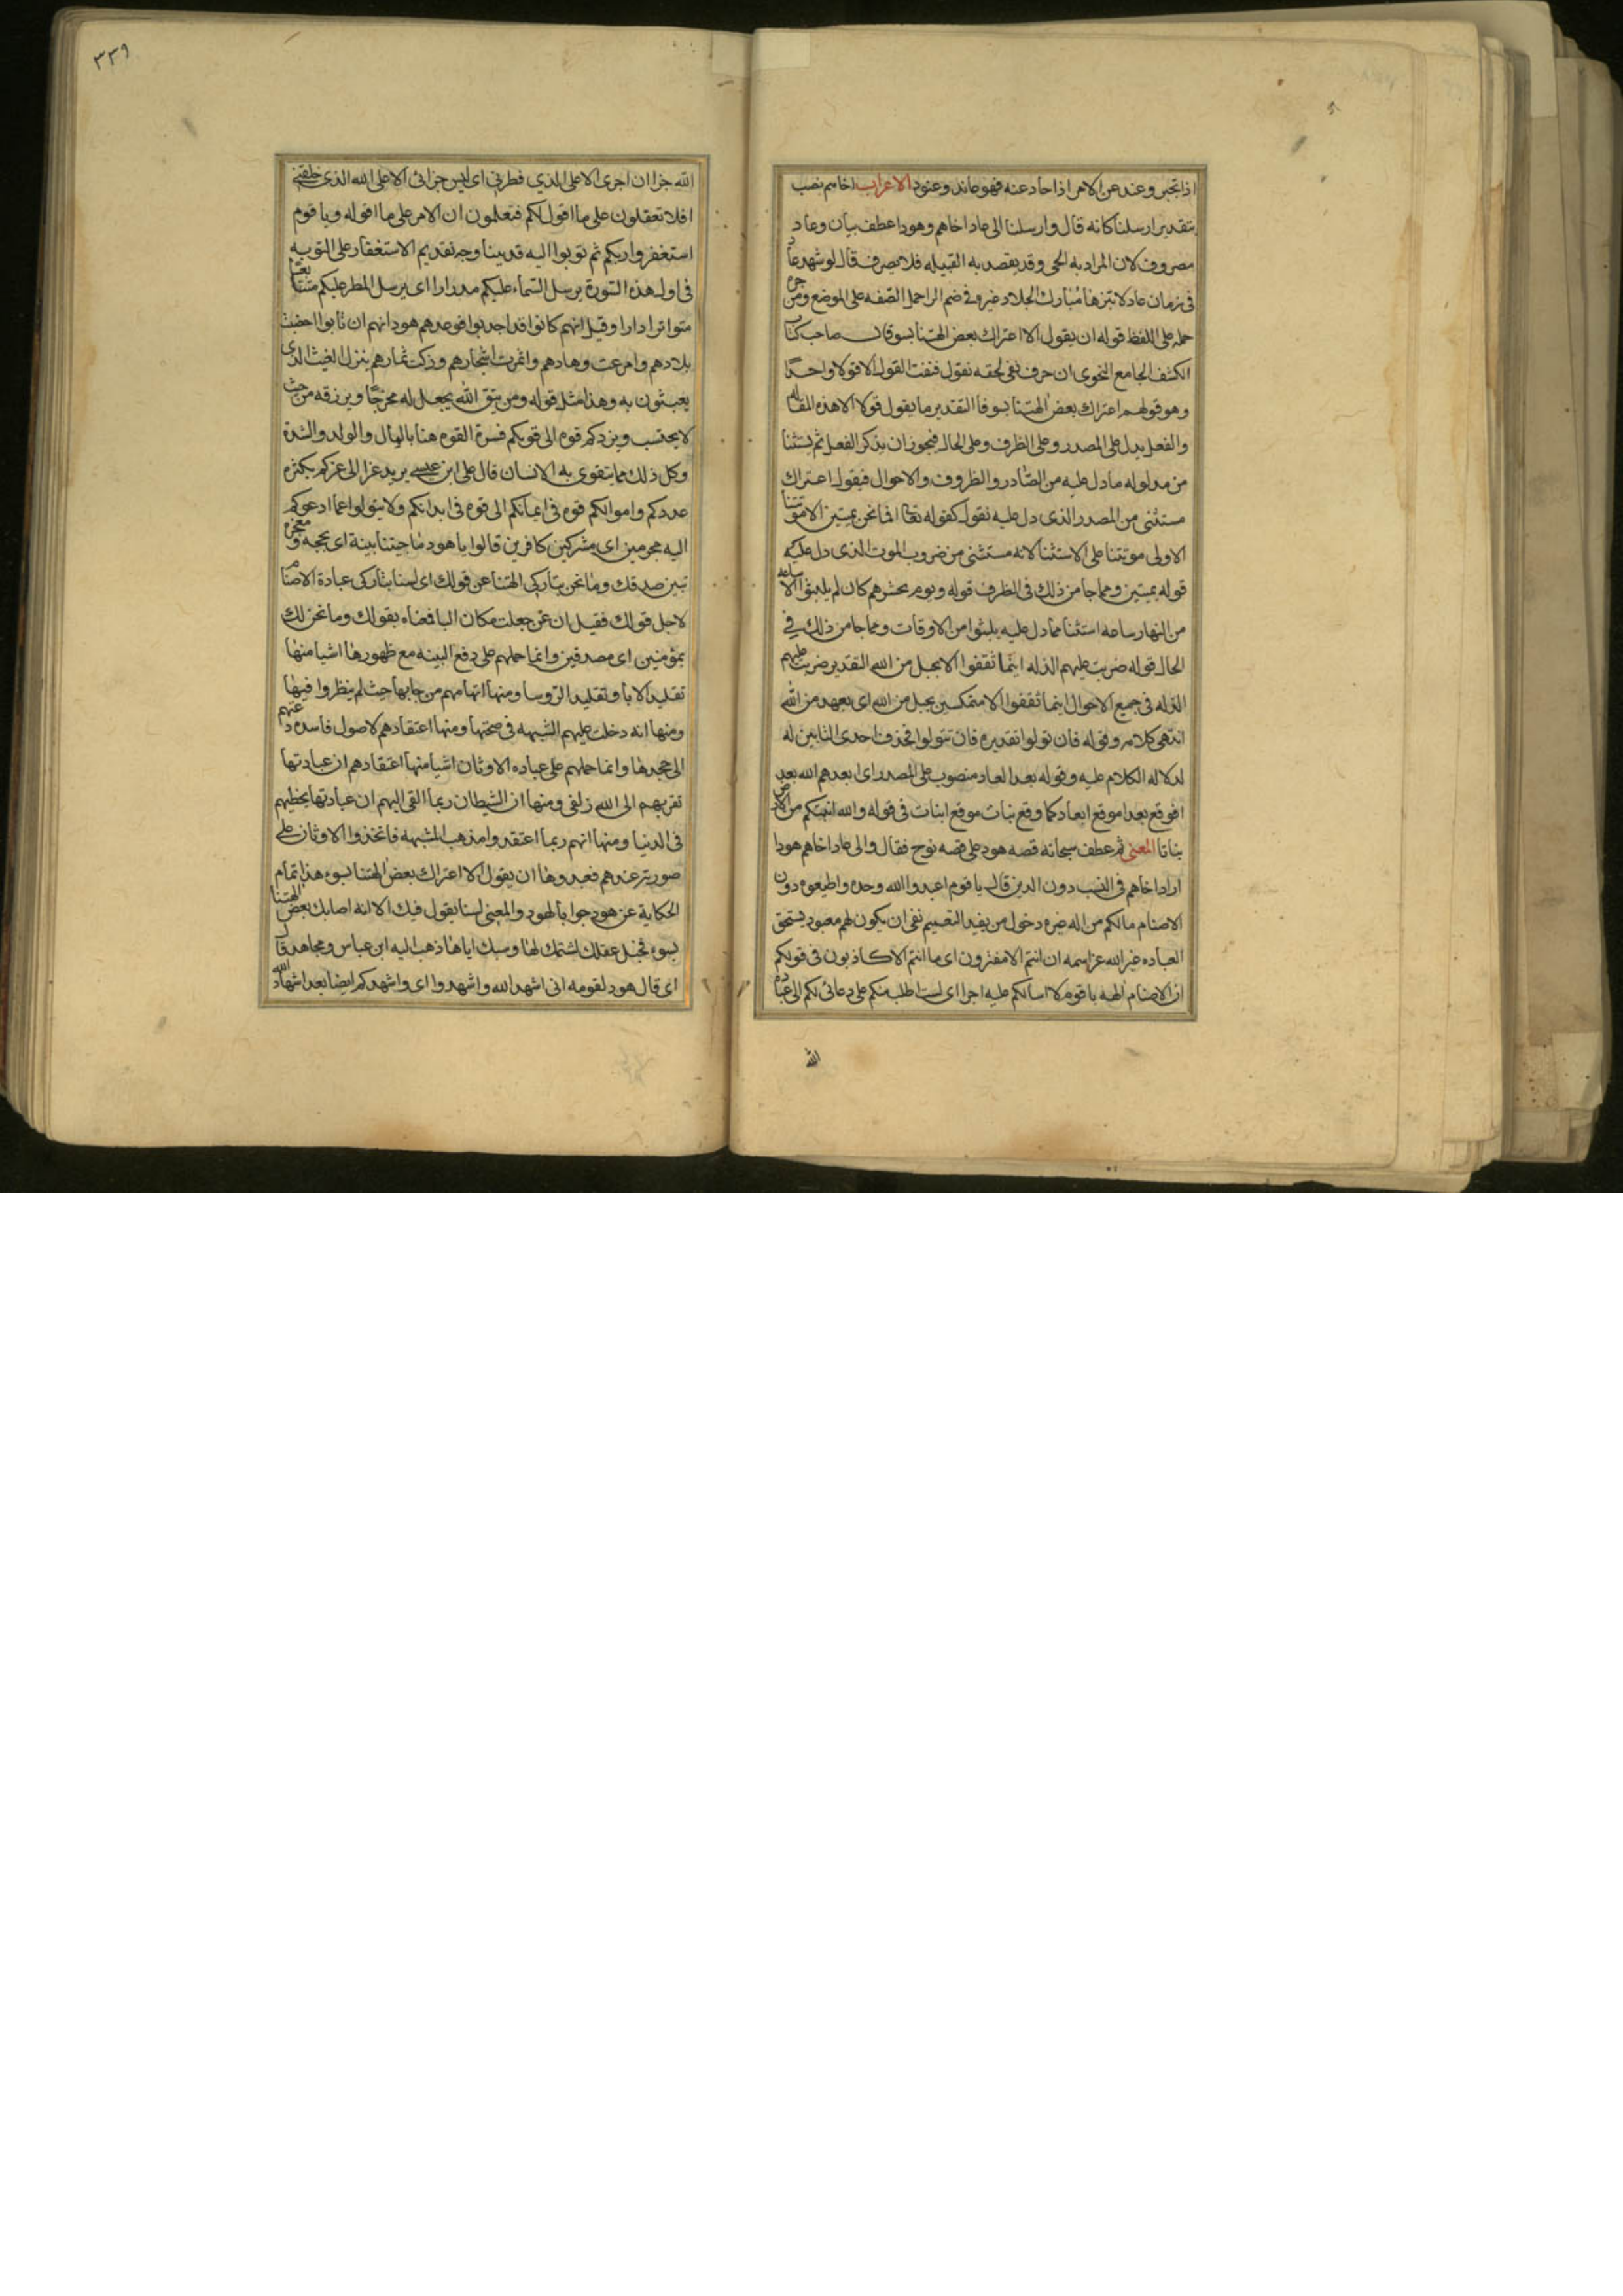 اذا تجبر وعند عن الامر اذا حاد عنه فهو عاند وعنود الاعراب اخاهم نصب
بتقدير ارسلنا كانه قال وارسلنا الى عاد اخاهم وهودا عطف بيان وعاد
مصروف لان المراد به الحى وقد يقصد به القبيله فلا يصرف قال لو شهد عاد
فى زمان عاد لابتزها مبارك الجلاد غيره فى ضم الرا حمل الصفه على الموضع ومن جره
حمله على اللفظ قوله ان يقول الا اعتراك بعض الهتنا بسو قال صاحب كتاب
الكشف الجامع النحوى ان حرف نفى لحقه نقول فنفت القول الا قولا واحدًا
وهو قولهم اعتراك بعض الهتنا بسو فالتقدير ما يقول قولا الا هذه المقاله
والفعل يدل على المصدر وعلى الظرف وعلى الحال فيجوز ان يذكر الفعل ثم يستثنا
من مدلوله ما دل عليه من المصادر والظروف والاحوال فيقول اعتراك
مستثنى من المصدر الذى دل عليه نقول كقوله تعالى افما نحن بميتين الا موتتنا
الاولى موتتنا على الاستثنا لانه مستثنى من ضروب الموت الذى دل عليه
قوله بميتين ومما جا من ذلك فى الظرف قوله ويوم يحشرهم كان لم يلبثوا الا ساعه
من النهار ساعه استثنا مما دل عليه يلبثوا من الاوقات ومما جا من ذلك فى
الحال قوله ضربت عليهم الذله اينما ثقفوا الا بحبل من الله التقدير ضربت عليهم
الذله فى جميع الاحوال اينما ثقفوا الا متمكسين بحبل من الله اى بعهد من الله
انتهى كلامه وقوله فان تولوا تقديره فان تتولوا فحذف احدى التايين له
لدلاله الكلام عليه وقوله بعدا لعاد منصوب على المصدر اى ابعدهم الله بعد
افوقع بعدا موقع ابعاد كما وقع نبات موقع انبات فى قوله والله انبتكم من الارض
نباتا المعنى ثم عطف سبحانه قصه هود على قصه نوح فقال والى عاد اخاهم هودا
اراد اخاهم فى النسب دون الدين قال يا قوم اعبدوا الله وحده واطيعوه دون
الاصنام ما لكم من اله غيره دخول من يفيد التعميم نفى ان يكون لهم معبود يستحق
العباده غير الله عز اسمه ان انتم الا مفترون اى ما انتم الا كاذبون فى قولكم
ان الاصنام الهه يا قوم لا اسالكم عليه اجرا اى لست اطلب منكم على دعائى لكم الى عباده
الله
٣٣٩
الله جزا ان اجرى الا على الذي فطرنى اى ليس جزائى الا على الله الذى خلقنى
افلا تعقلون على ما اقول لكم فتعلمون ان الامر على ما اقوله ويا قوم
استغفروا ربكم ثم توبوا اليه قد بينا وجه تقديم الاستغفار على التوبه
فى اول هذه السورة يرسل السماء عليكم مدرارا اى يرسل المطر عليكم متتابعًا
متواترا دارا وقيل انهم كانوا قد اجدبوا فوعدهم هود انهم ان تابوا اخصبت
بلادهم وامرعت وهادهم واثمرت اشجارهم وزكت ثمارهم بنزل الغيث الذى
يعيشون به وهذا مثل قوله ومن يتق الله يجعل له مخرجًا ويرزقه من حيث
لا يحتسب ويزدكم قوه الى قوتكم فسرة القوه هنا بالمال والولد والشدة
وكل ذلك مما يتقوى به الانسان قال على ابن عيسى يريد عزا الى عزكم بكثره
عددكم واموالكم قوه فى ايمانكم الى قوه فى ابدانكم ولا يتولوا عما ادعوكم
اليه مجرمين اى مشركين كافرين قالوا يا هود ما جيتنا ببينة اى بحجه ومعجزه
تبين صدقك وما نحن بتاركى الهتنا عن قولك اى لسنا بتاركى عبادة الاصنام
لاجل قولك فقيل ان عن جعلت مكان البا فمعناه بقولك وما نحن لك
بمؤمنين اى مصدقين وانما حملهم على دفع البينه مع ظهورها اشيا منها
تقليد الابا وتقليد الروسا ومنها اتهامهم من جا بها حيث لم ينظروا فيها
ومنها انه دخلت عليهم الشبهه فى صحتها ومنها اعتقادهم لاصول فاسده دعتهم
الى جحدها وانما حملهم على عباده الاوثان اشيا منها اعتقادهم ان عبادتها
تقربهم الى الله زلفى ومنها ان الشيطان ربما القى اليهم ان عبادتها يحظيهم
فى الدنيا ومنها انهم ربما اعتقدوا مذهب المشبهه فاتخذوا الاوثان على
صورته عندهم فعبدوها ان يقول الا اعتراك بعض الهتنا بسوء هذا تمام
الحكاية عن هود جوابا لهود والمعنى لسنا يقول فيك الا انه اصابك بعض الهتنا
بسوء فخبل عقلك لشتمك لها وسبك اياها ذهب اليه ابن عباس ومجاهد قال
اى قال هود لقومه انى اشهد الله واشهدوا اى واشهدكم ايضا بعد اشهاد الله